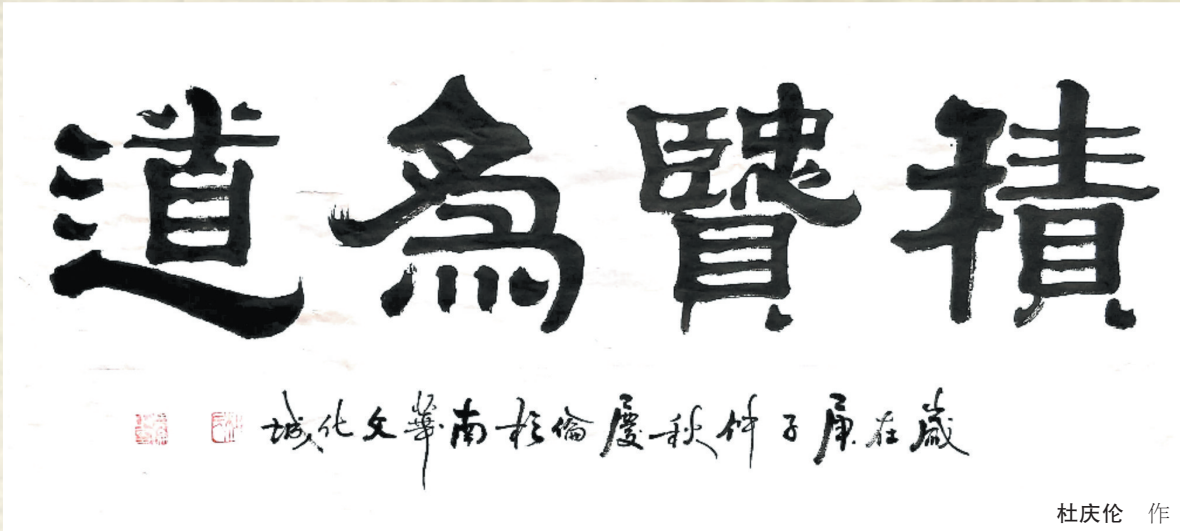 積賢為道
歲在庚子仲秋慶倫於南華文化城
杜庆伦 作